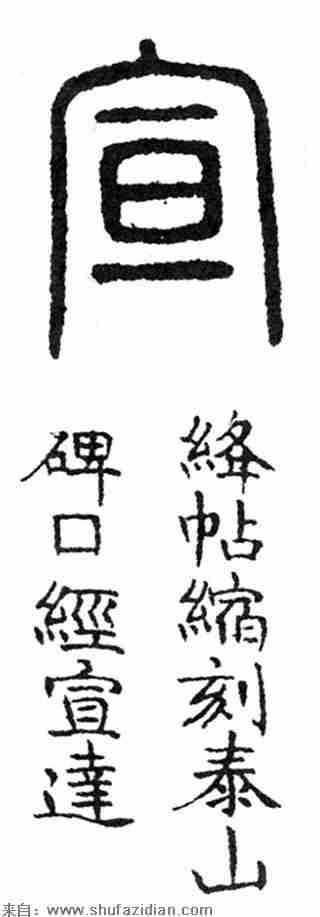 宣
絳帖縮刻泰山
碑口經宣達
来自：www.shufazidian.com